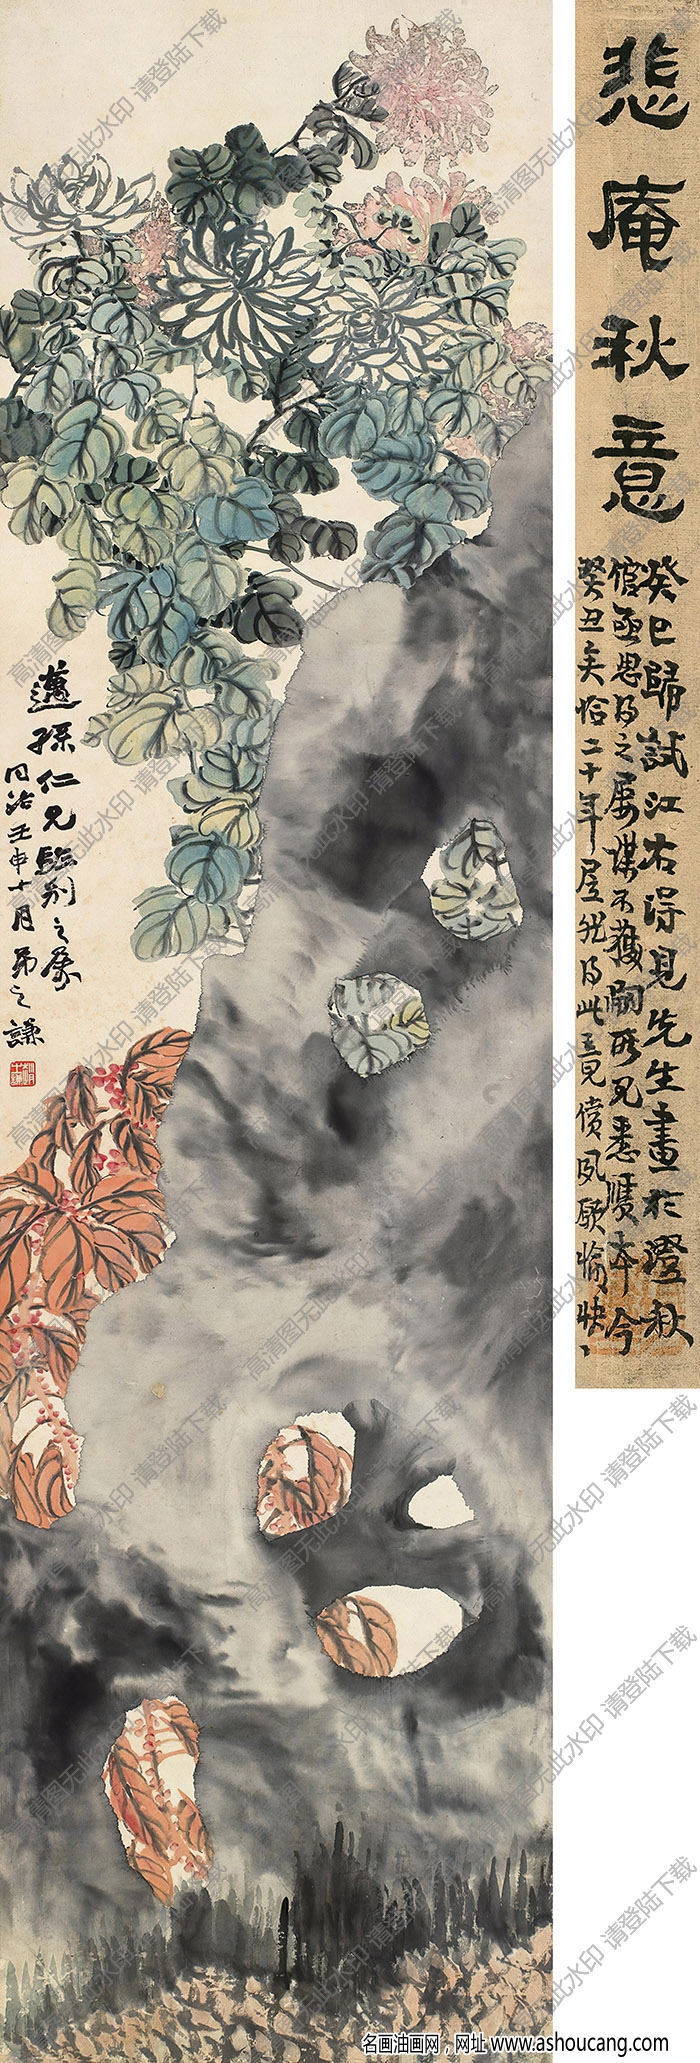 悲庵秋意
癸巳歸試江右得見先生畫於澄秋
館亟思得之屢謀不獲嗣所見悉贋本今
癸丑矣恰二十年居然得此意償夙願愉快
邁孫仁兄臨別之屬
同治壬申十月弟之謙
高清图无此水印 请登陆下载
名画油画网，网址 www.ashoucang.com